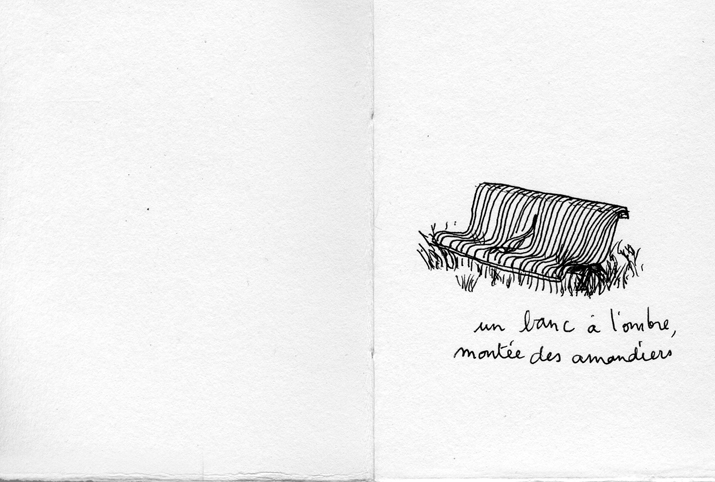 un banc à l'ombre,
montée des amandiers